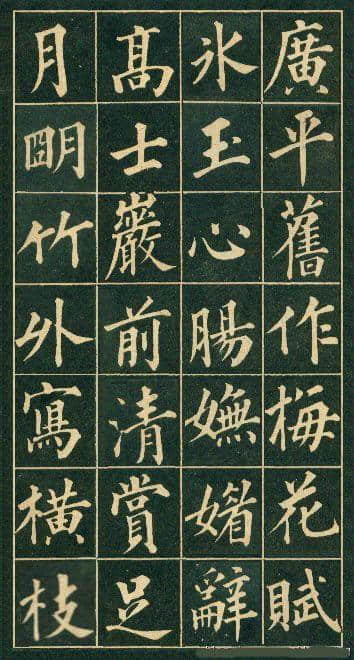 廣平舊作梅花賦
氷玉心腸嫵媚辭
髙士巖前清賞足
月朙竹外寫橫枝